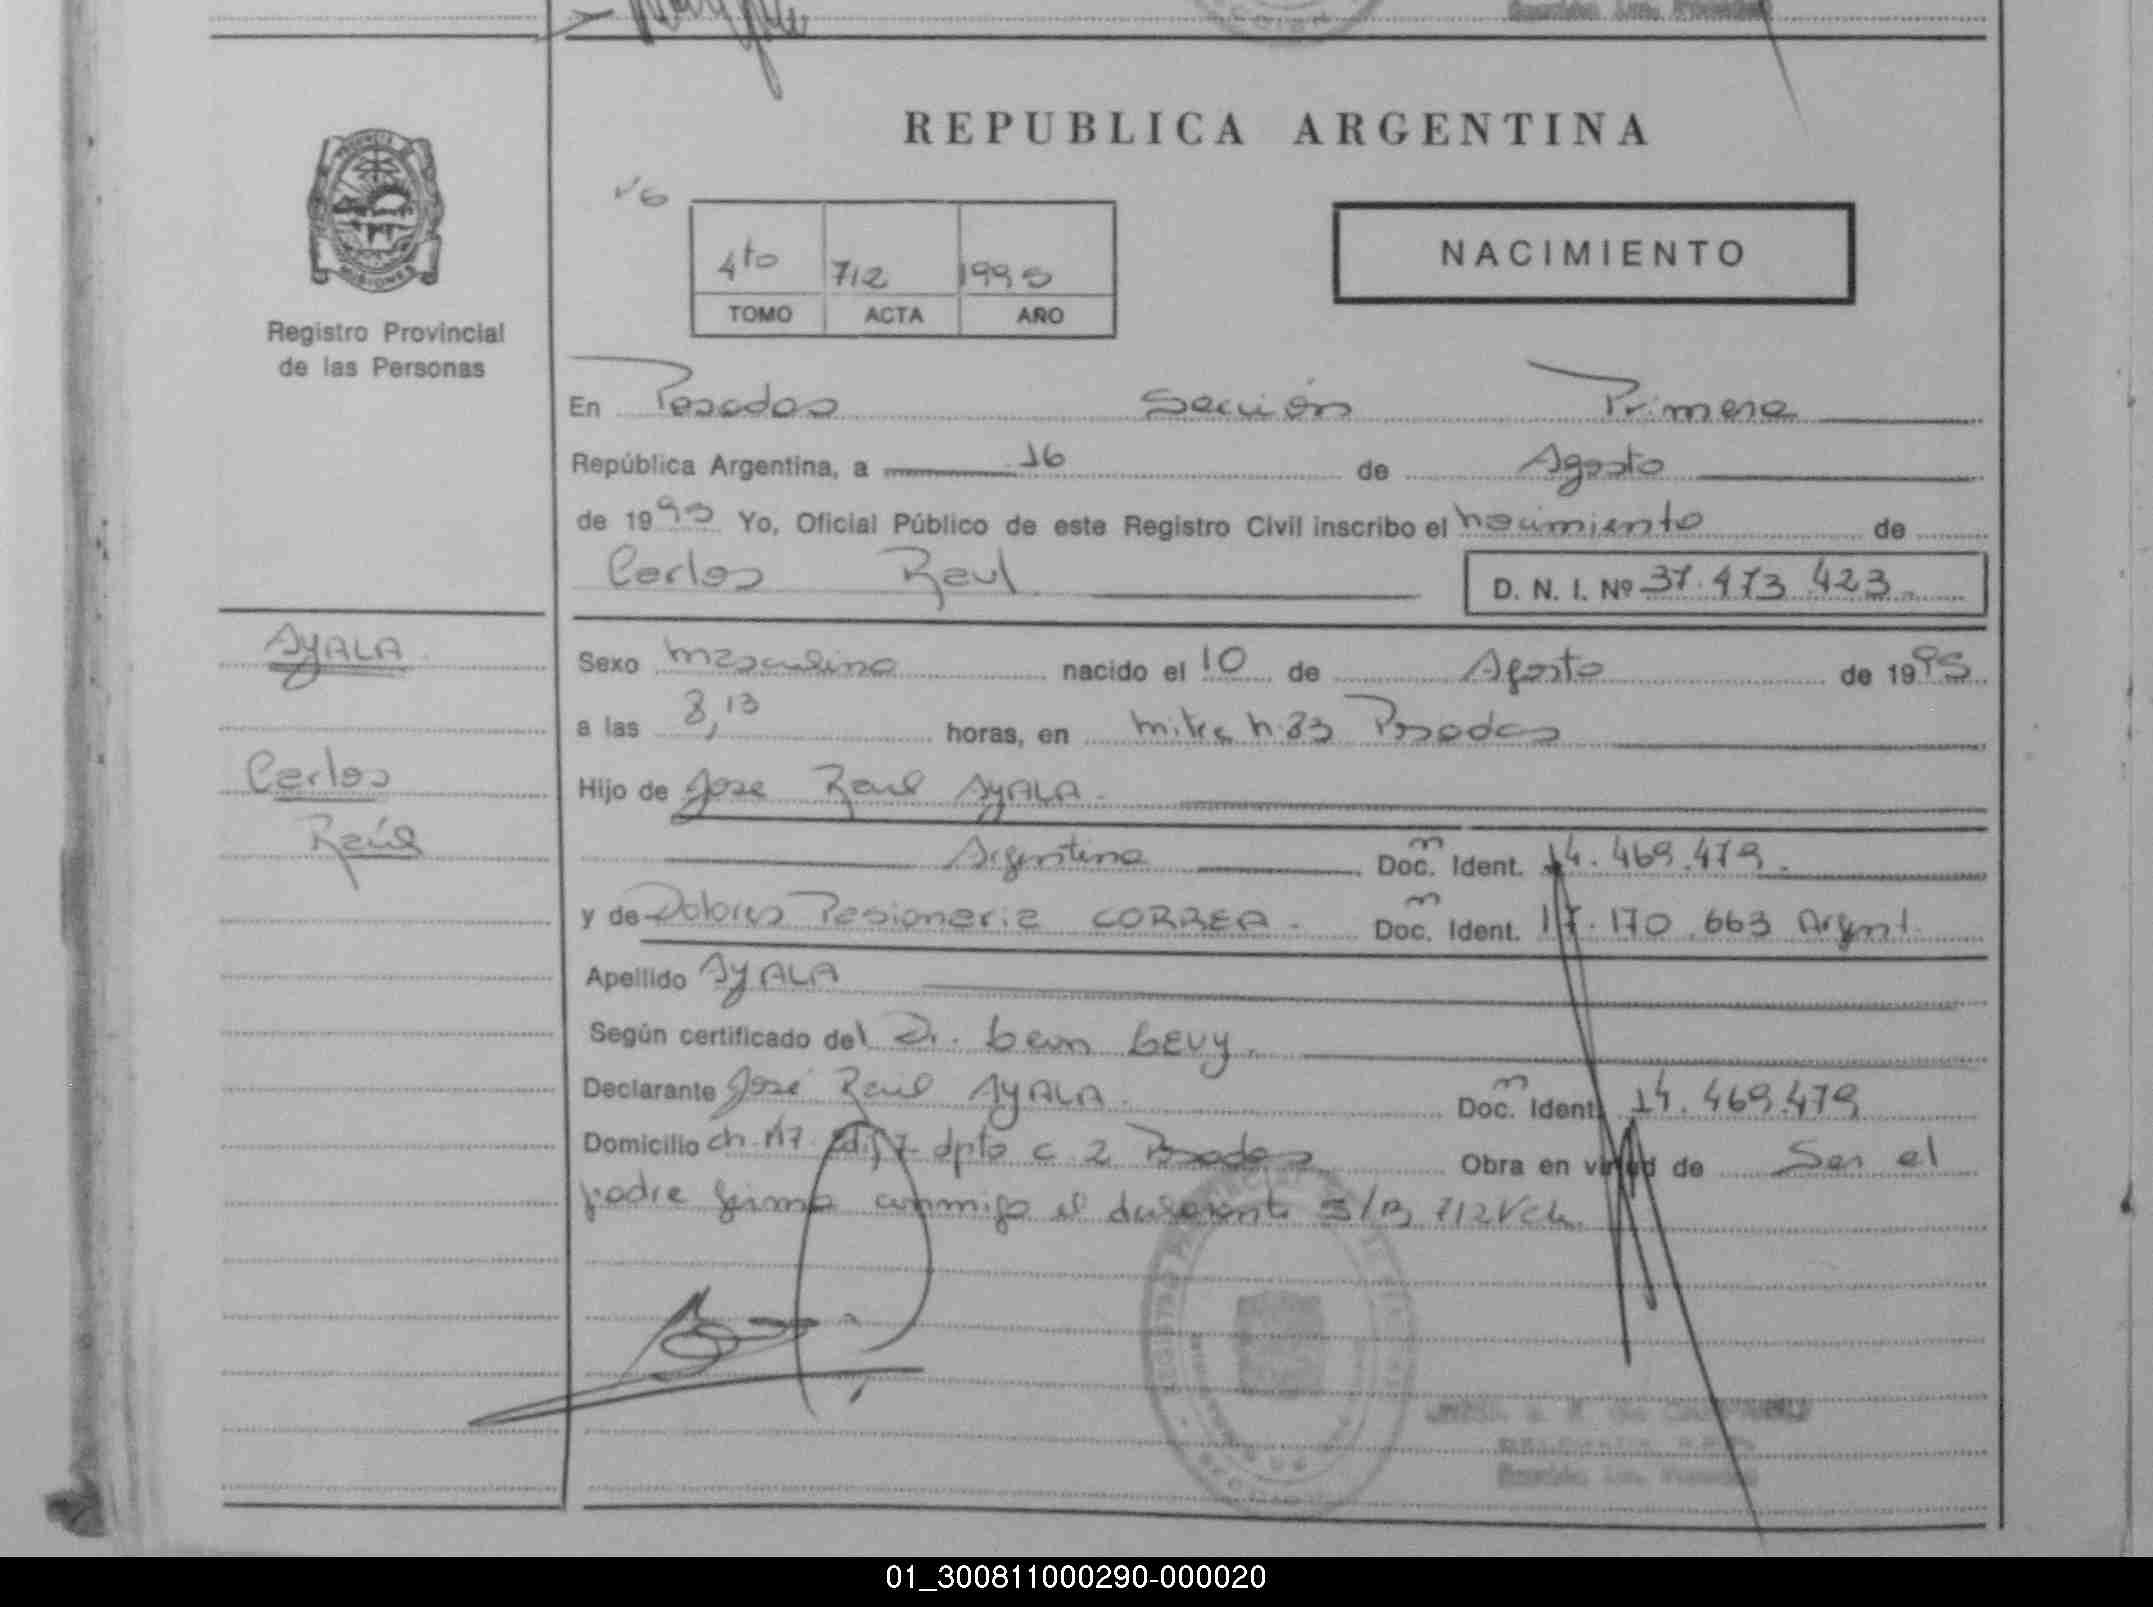 REPUBLICA ARGENTINA
NACIMIENTO
4to 712 1995
TOMO ACTA AÑO
Registro Provincial
de las Personas
En Posadas Sección Primera
República Argentina, a 16 de Agosto
de 1995 Yo, Oficial Público de este Registro Civil inscribo el nacimiento de
Carlos Raul D. N. I. Nº 37.473.423
AYALA
Carlos
Raúl
Sexo masculino nacido el 10 de Agosto de 1995
a las 8,13 horas, en Mitre n. 83 Posadas
Hijo de Jose Raul AYALA
Argentino Doc. Ident. 14.469.479
y de Dolores CORREA Doc. Ident. 17.170.663 Argent.
Apellido AYALA
Según certificado del Dr. LEVY
Declarante José Raul AYALA Doc. Ident. 14.469.479
Domicilio ch. 117 Edif 7 dpto c 2 Posadas Obra en virtud de Ser el
padre firma conmigo el declarante 712
01_300811000290-000020